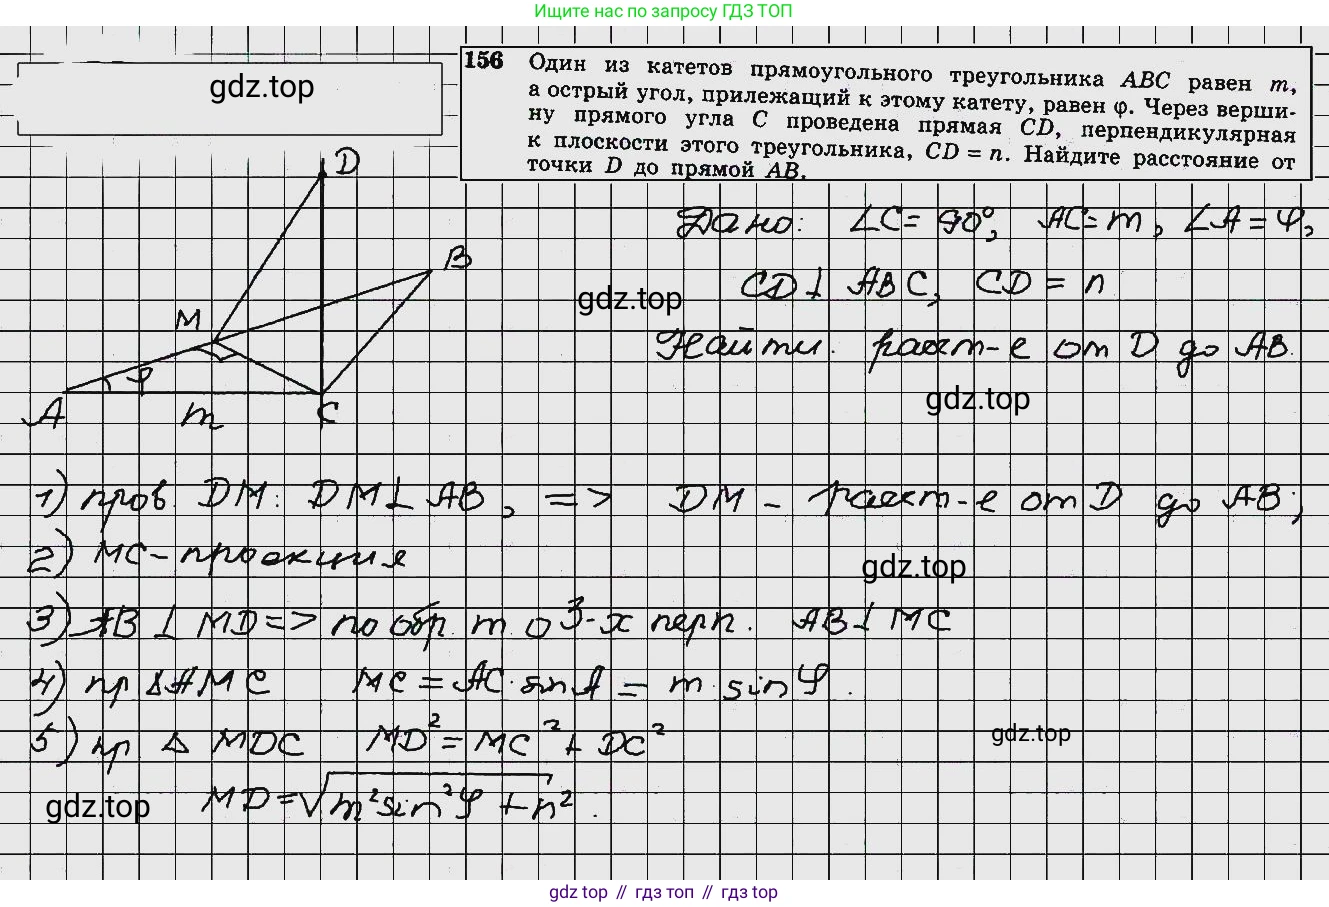 Ищите нас по запросу ГДЗ ТОП
gdz.top
156 Один из катетов прямоугольного треугольника ABC равен m,
а острый угол, прилежащий к этому катету, равен φ. Через верши-
ну прямого угла C проведена прямая CD, перпендикулярная
к плоскости этого треугольника, CD = n. Найдите расстояние от
точки D до прямой AB.
D
B
M
φ
A
m
C
Дано: ∠C = 90°, AC = m, ∠A = φ,
CD ⊥ ABC, CD = n
gdz.top
Найти: раст-е от D до AB.
gdz.top
1) пров. DM: DM ⊥ AB, => DM - раст-е от D до AB;
2) MC - проекция
gdz.top
3) AB ⊥ MD => по обр. т. о 3-х перп. AB ⊥ MC
4) пр △AMC MC = AC · sin A = m · sin φ.
5) пр △ MDC MD² = MC² + DC²
gdz.top
gdz.top
MD = √m² sin² φ + n².
gdz top // гдз топ // gdz top